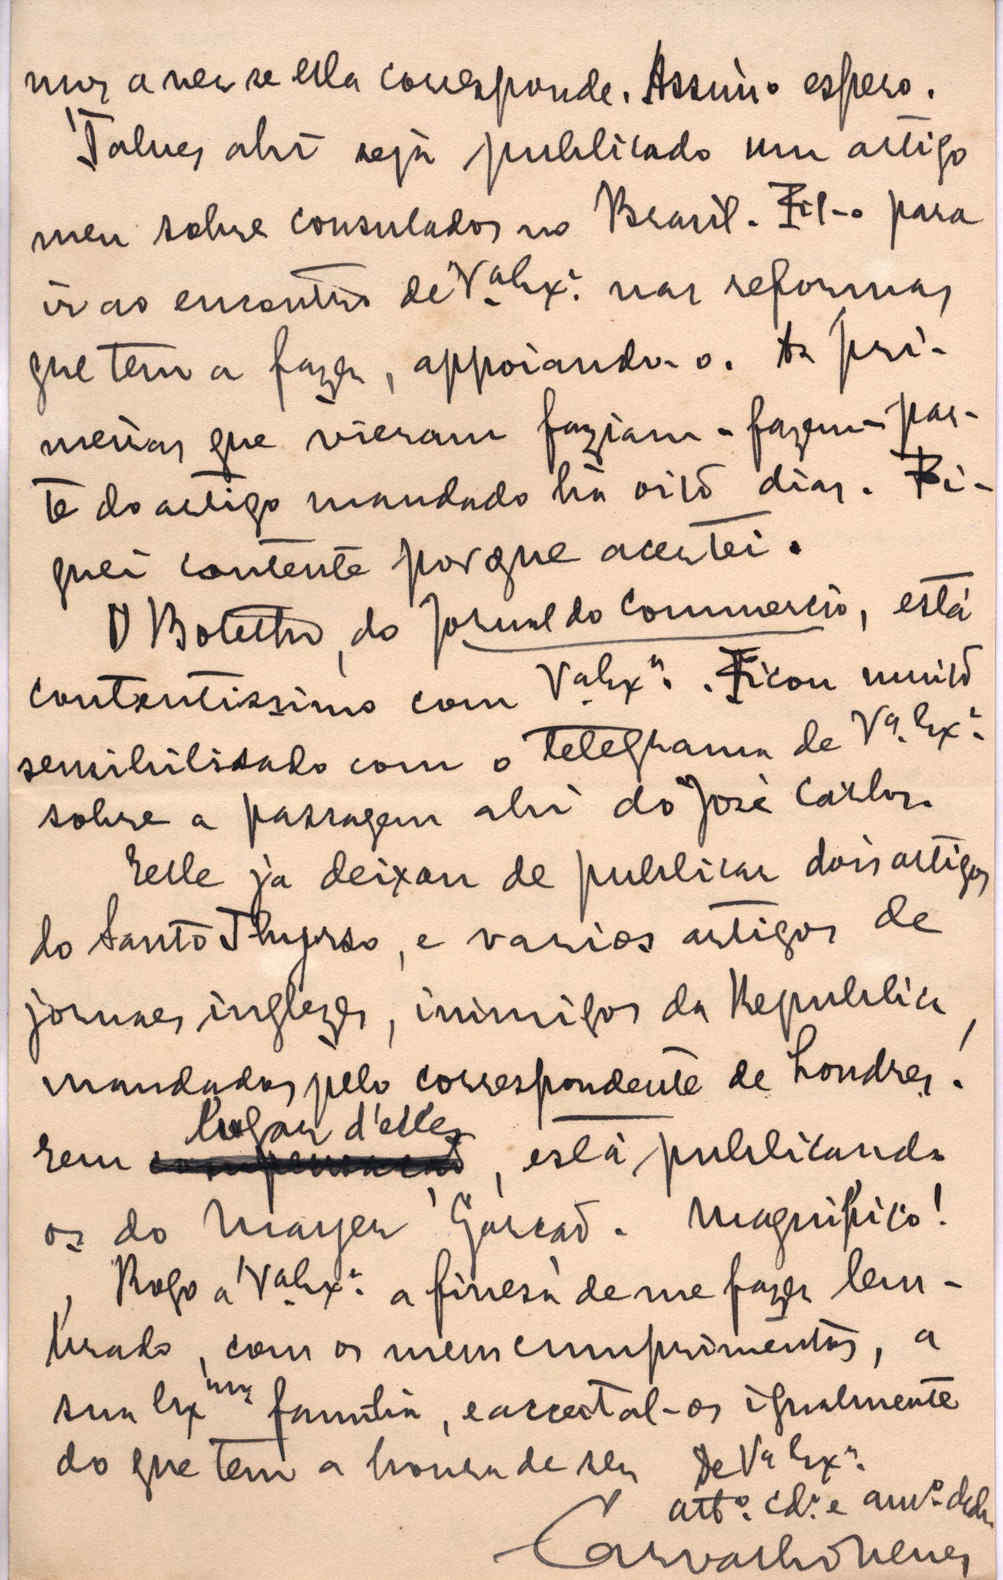 mos a ver se ella corresponde. Assim o espero.
Talvez ahi seja publicado um artigo
meu sobre consulados no Brasil. Fil-o para
ir ao encontro de Vª Exª. nas reformas
que tem a fazer, appoiando-o. As pri-
meiras que vieram faziam - fazem - par-
te do artigo mandado há oito dias. Fi-
quei contente porque acertei.
O Botelho, do Jornal do Commercio, está
contentissimo com Vª Exª. Ficou muito
sensibilisado com o telegrama de Vª. Exª.
sobre a passagem ahi do José Carlos.
Elle já deixou de publicar dois artigos
do Santo Thyrso, e varios artigos de
jornaes inglezes, inimigos da Republica,
mandados pelo correspondente de Londres.
logar d'elles
Em compensação, está publicando
os do Mayer Garção. Magnifico!
Rogo a Vª Exª. a finesa de me fazer lem-
brado, com os meus cumprimentos, a
sua Exma familia, e acceital-os igualmente
do que tem a honra de ser De Vª Exª.
attº. cdº. e amº. ded.
Carvalho Neves